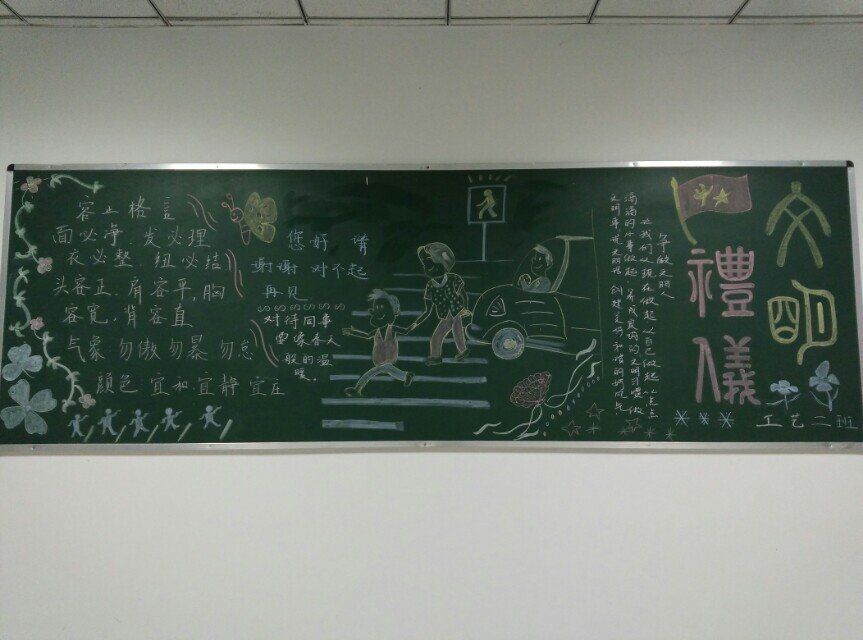 容止格言
面必净.发必理
衣必整 纽必结
头容正.肩容平,胸
容宽,背容直
气象:勿傲勿暴 勿怠
颜色:宜和 宜静 宜庄
您好 请
谢谢 对不起
再见
对待同事
要像春天
般的温
暖.
争做文明人
让我们从现在做起 从自己做起 从点点
滴滴的小事做起 养成良好的文明习惯 做
文明事 说文明话
文明
禮儀
工艺二班